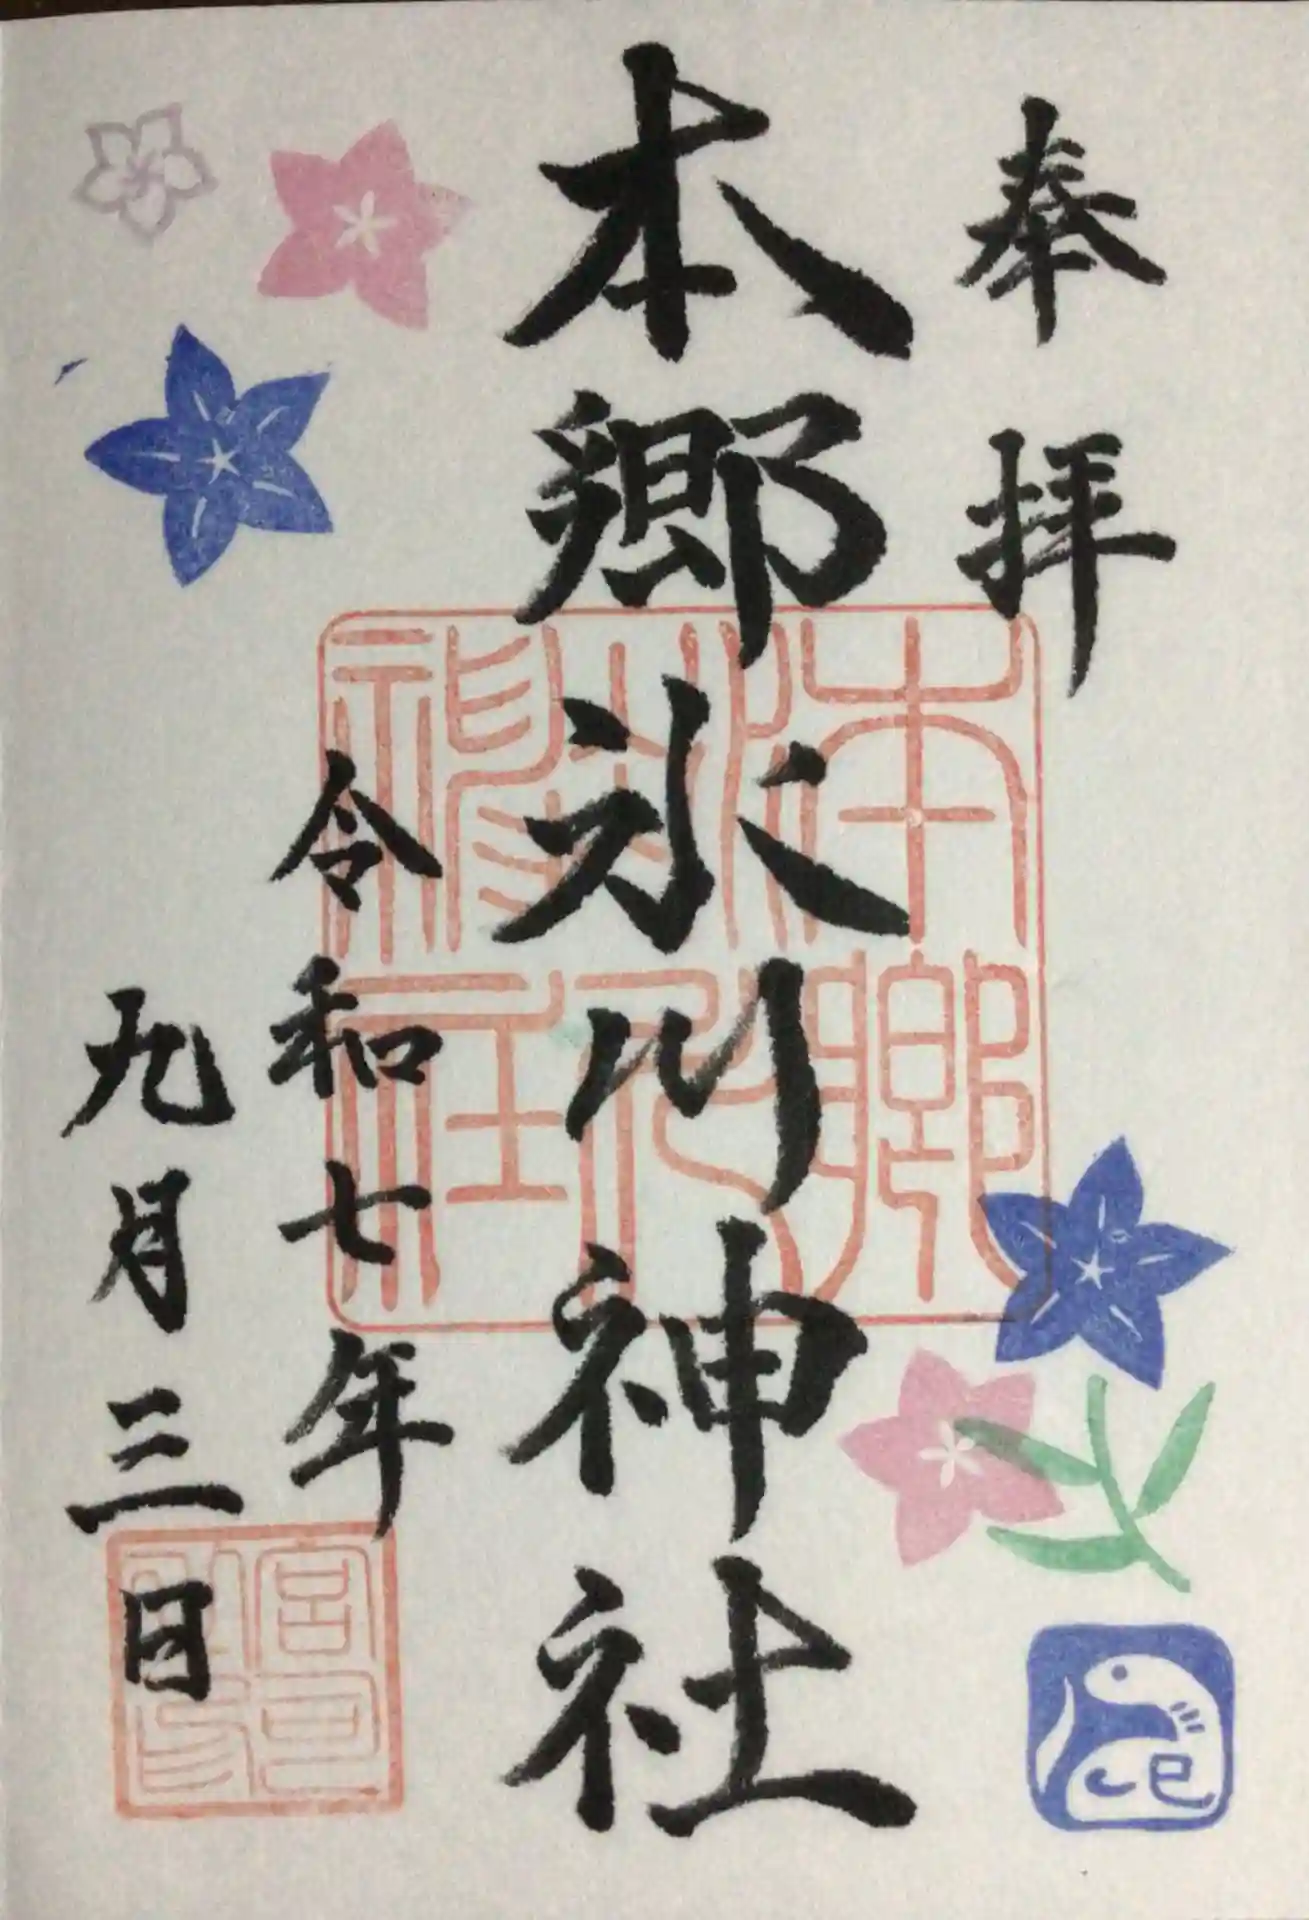 奉拝
本郷氷川神社
令和七年
九月三日
本郷
氷川
神社
巳